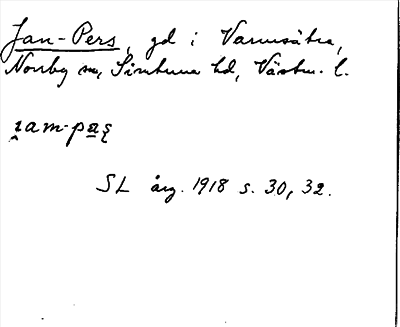 Jan-Pers, gd i Varmsätra,
Norrby sn, Simtuna hd, Västm. l.
ɪam-pas̨
SL årg. 1918 s. 30, 32.